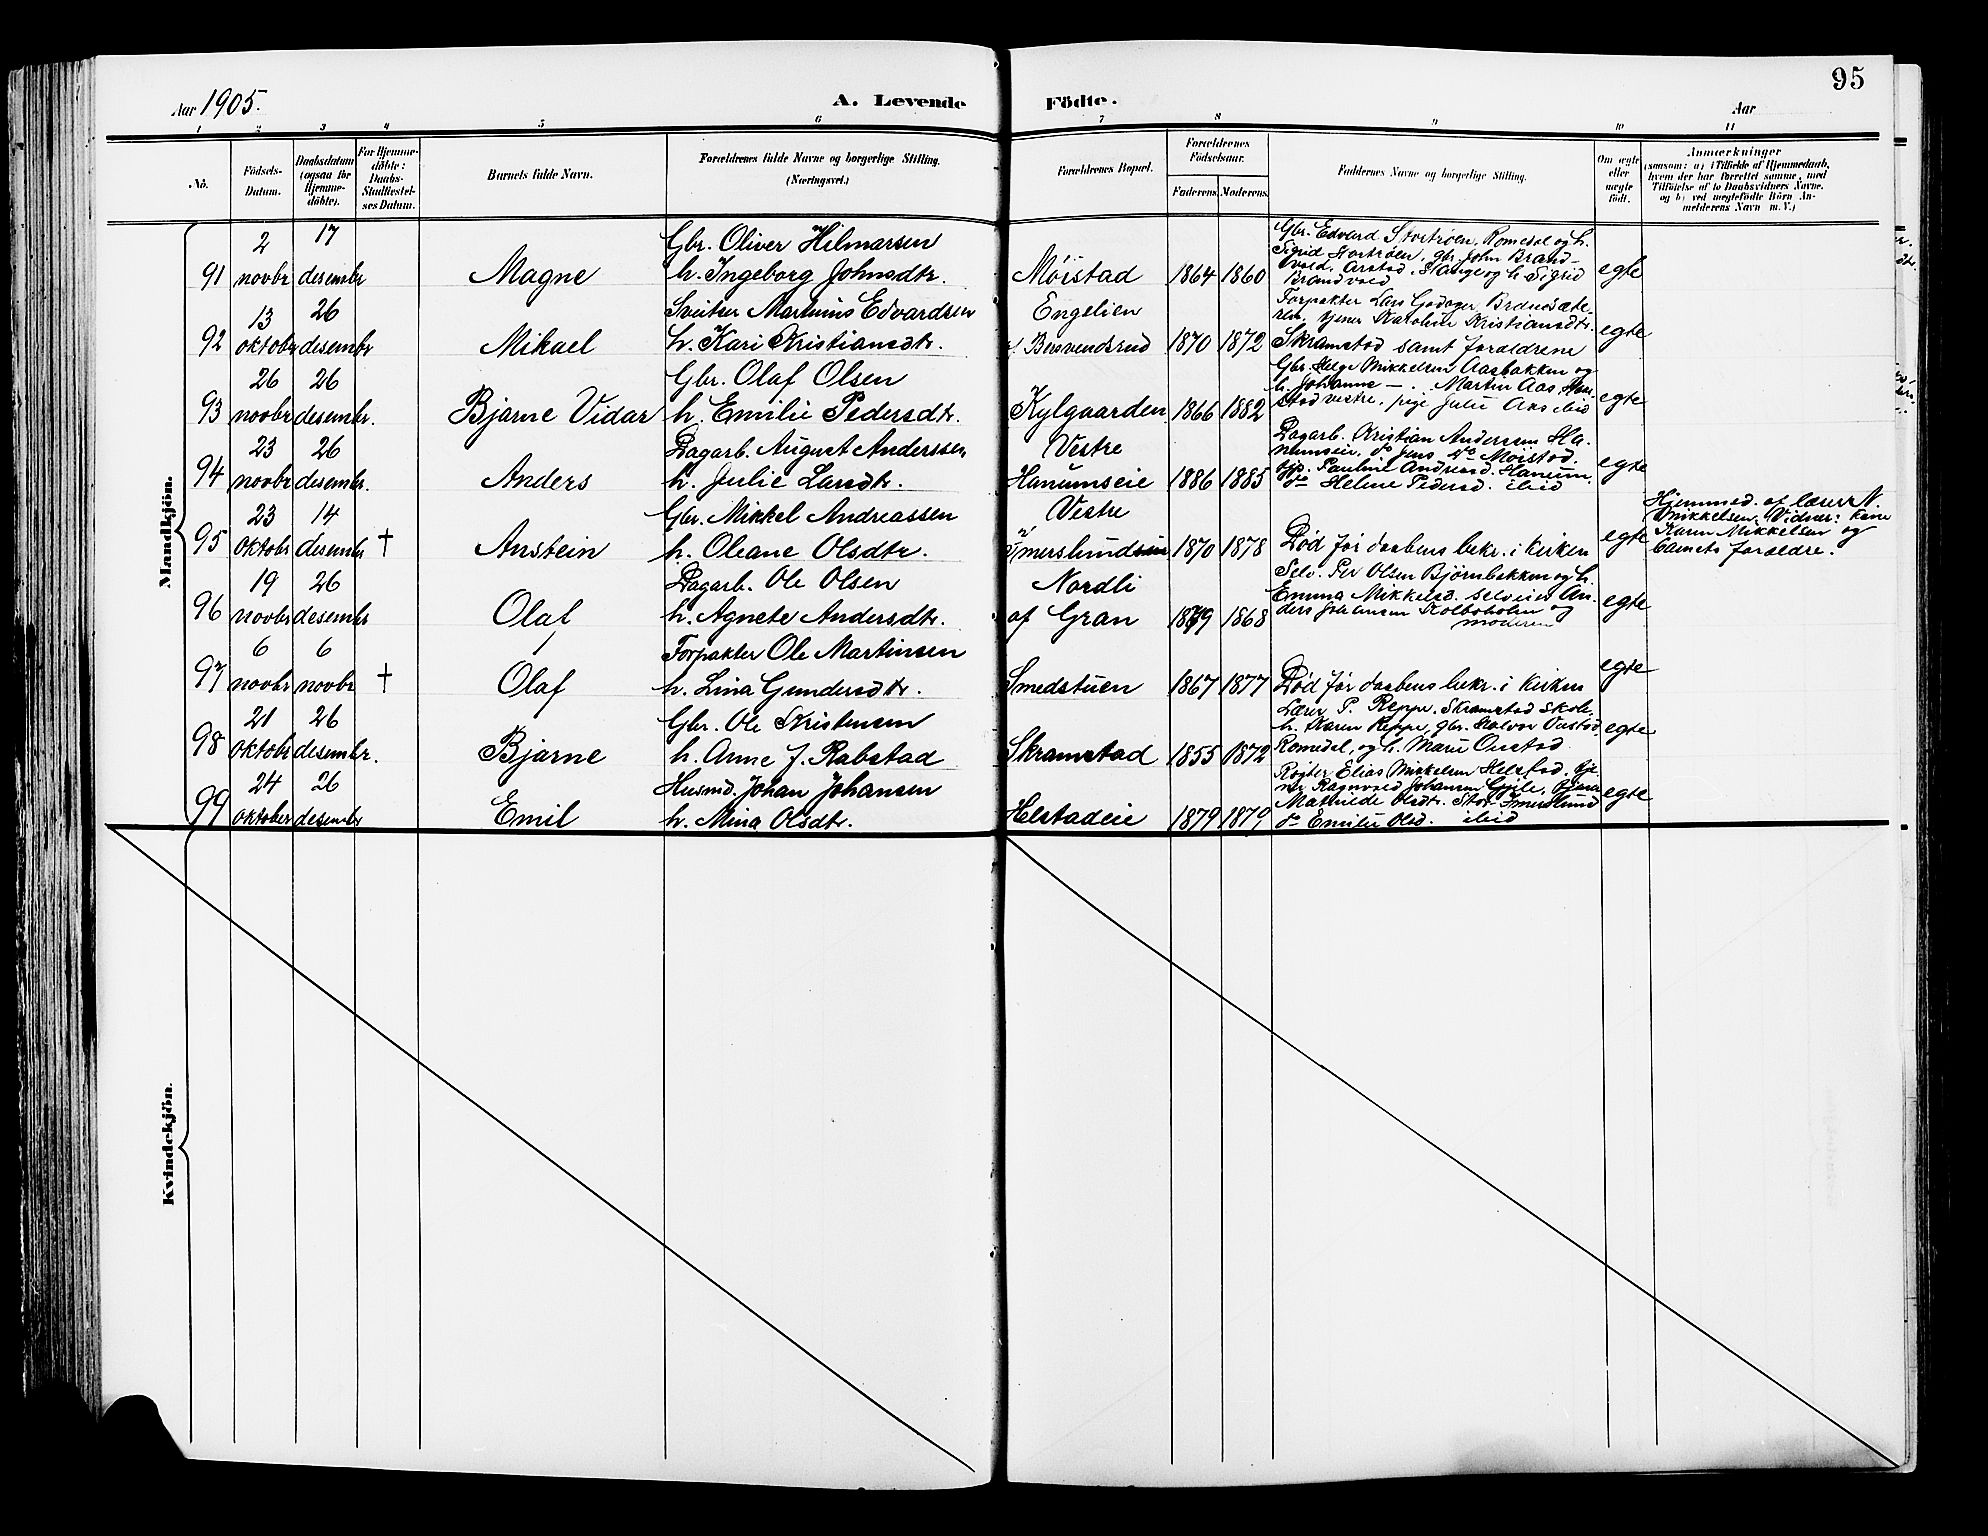 95
Aar 1905.
A. Levende Födte.
Aar
1 2 3 4 5 6 7 8 9 10 11
No.
Födsels-Datum.
Daabsdatum (ogsaa for Hjemme-döbte).
For Hjemme-döbte: Daabs-Stadfæstel-ses Datum.
Barnets fulde Navn.
Forældrenes fulde Navne og borgerlige Stilling. (Næringsvei.)
Forældrenes Bopæl.
Forældrenes Födselsaar.
Faderens. Moderens.
Faddernes Navne og borgerlige Stilling.
Om ægte eller uægte födt.
Anmærkninger
(saasom: a) i Tilfælde af Hjemmedaab, hvem der har forrettet samme, med Tilföielse af to Daabsvidners Navne, og b) ved uægtefödte Börn An-melderens Navn m. V.)
Mandkjön.
91 2 novbr 17 desembr Magne
Gbr. Oliver Hilmarsen
h. Ingeborg Johnsdtr.
Möistad 1864 1860
Gbr. Edvard Stortröen, Romedal og h.
Sigrid Stortröen, gbr. John Brand-
vold, Arstad, Stange og h. Sigrid
Brandvold
egte
92 13 oktobr 26 desembr Mikael
Sveitser Martinius Edvardsen
h. Kari Kristiansdtr.
Engelien
Bersvendsrud 1870 1872
Forpakter Lars Godager, Brdnusæte-
ren, tjener Karoline Kristiansdtr.
Skramstad samt forældrene
egte
93 26 novbr 26 desembr. Bjarne Vidar
Gbr. Olaf Olsen
h. Emilie Pedersdtr.
Kylgaarden 1866 1882
Gbr. Helge Mikkelsen Aasbakken og
h. Johanne — . Martin Aas,
stad vestre, pige Julie Aas ibid
egte
94 23 novbr 26 desembr. Anders
Dagarb. August Anderssen
h. Julie Larsdtr.
Vestre
Hanumseie 1886 1885
Dagarb. Kristian Andersen Ha-
numseie, do Jens Möistad.
Pauline Andersd. Hanum.
do Helene Pedersd. ibid
egte
95 23 oktobr 14 desembr † Anstein
Gbr. Mikkel Andreassen
h. Oleane Olsdtr.
Vestre
Imerslund 1870 1878
Död för daabens bekr. i kirken
egte
Hjemmed. af lærer N.
Mikkelsen, Vidner: kone
Karen Mikkelsen og
barnets forældre.
96 19 novbr 26 desembr Olaf
Dagarb. Ole Olsen
h. Agnete Andersdtr.
Nordli
af Gran 1879 1868
Selv. Per Olsen Björnbakken og h.
Emma Mikkelsd. selveier An-
ders Johansen Kolboholen og
moderen
egte
97 6 novbr 6 novbr † Olaf
Forpakter Ole Martinsen
h. Lina Gundersdtr.
Smedstuen 1867 1877
Död för daabens bekr. i kirken
egte
98 21 oktobr 26 desembr. Bjarne
Gbr. Ole Kristensen
h. Anne J. Rabstad
Skramstad 1855 1872
Lærer P. Reppe, Skramstad Skole
h. Karen Reppe, gbr. Halvor Onstad
Romedal, og h. Marie Onstad
egte
99 24 oktober 26 desembr Emil
Husmd. Johan Johansen
h. Mina Olsdtr.
Helstadeie 1879 1879
Rögter Elias Mikkelsen Helstad, tje-
ner Ragnvald Johansen Gjile,
Mathilde Olsdtr. Stor-Imerslund
do Emilie Olsd. ibid
egte
Kvindekjön.